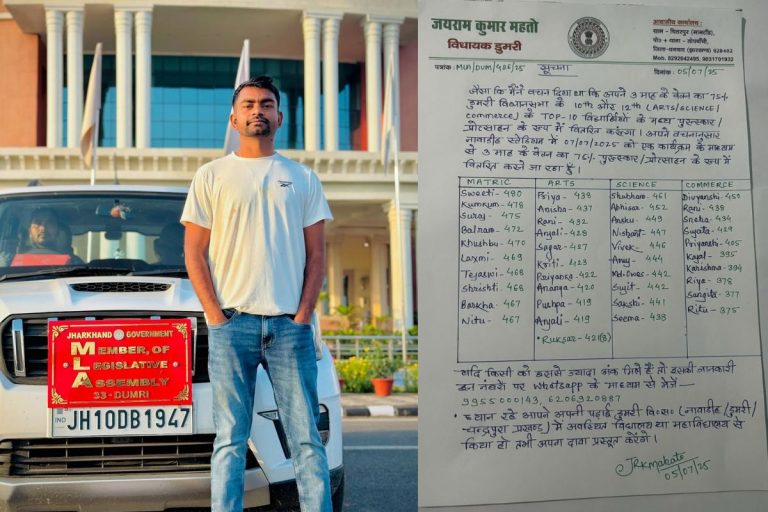 JHARKHAND GOVERNMENT
MEMBER, OF
LEGISLATIVE
ASSEMBLY
33-DUMRI
M
L
A
IND
JH10DB1947
जयराम कुमार महतो
विधायक डुमरी
आवासीय कार्यालय :
ग्राम - चितरपुर (मानटांड)
पो० + थाना - तोपचाँची,
जिला-धनबाद (झारखण्ड) 828402
Mob: 8292042495, 9031701932
पत्रांक : MLA/DUM/426/25
सूचना
दिनांक : 05/07/25
जैसा कि मैंने वचन दिया था कि अपने 3 माह के वेतन का 75%
डुमरी विधानसभा के 10th और 12th (ARTS/SCIENCE/
commerce) के TOP-10 विद्यार्थियों के मध्य पुरुस्कार/
प्रोत्साहन के रूप में वितरित करूंगा। अपने वचनानुसार
नावाडीह स्टेडियम में 07/07/2025 को एक कार्यक्रम के माध्यम
से 3 माह के वेतन का 75% पुरुस्कार/प्रोत्साहन के रूप में
वितरित करने जा रहा हूँ।
MATRIC ARTS SCIENCE COMMERCE
Sweeti - 480 Priya - 438 Shubham - 461 Divyanshi - 459
Kumkum - 478 Anisha - 437 Abhisa - 452 Rani - 438
Suraj - 475 Rani - 432 Ansku - 449 Sneha - 434
Balnam - 472 Anjali - 428 Nishant - 447 Sujata - 429
Khushbu - 470 Sagar - 427 Vivek - 446 Priyanshi - 405
Laxmi - 469 Kriti - 423 Anay - 444 Kajal - 395
Tejaswi - 468 Priyanka - 422 Md. - 442 Karishma - 394
Shrishti - 468 Ananya - 420 Sujit - 442 Riya - 378
Barkha - 467 Pushpa - 419 Sakshi - 441 Sangita - 377
Nitu - 467 Anjali - 419 Seema - 438 Ritu - 375
Ruksar - 421(B)
यदि किसी को इससे ज्यादा अंक मिले हैं तो इसकी जानकारी
इन नंबरों पर Whatsapp के माध्यम से भेजें —
9955000143, 6206920887
• ध्यान रहे आपने अपनी पढ़ाई डुमरी वि०स० (नावाडीह/डुमरी/
चन्द्रपुरा प्रखण्ड) में अवस्थित विद्यालय या महाविद्यालय से
किया हो तभी अपना दावा प्रस्तुत करेंगे।
JRKmahato
05/07/25